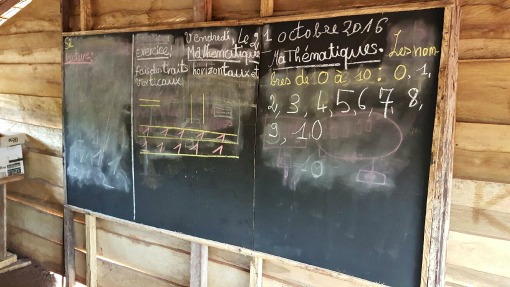 Vendredi, Le 21 octobre 2016
Lecture:
Exercice:
Mathématique
fais des traits horizontaux et
verticaux
1 1 1 1 1
1 1 1 1 1
Mathématiques. Les nom-
bres de 0 à 10: 0, 1,
2, 3, 4, 5, 6, 7, 8,
9, 10